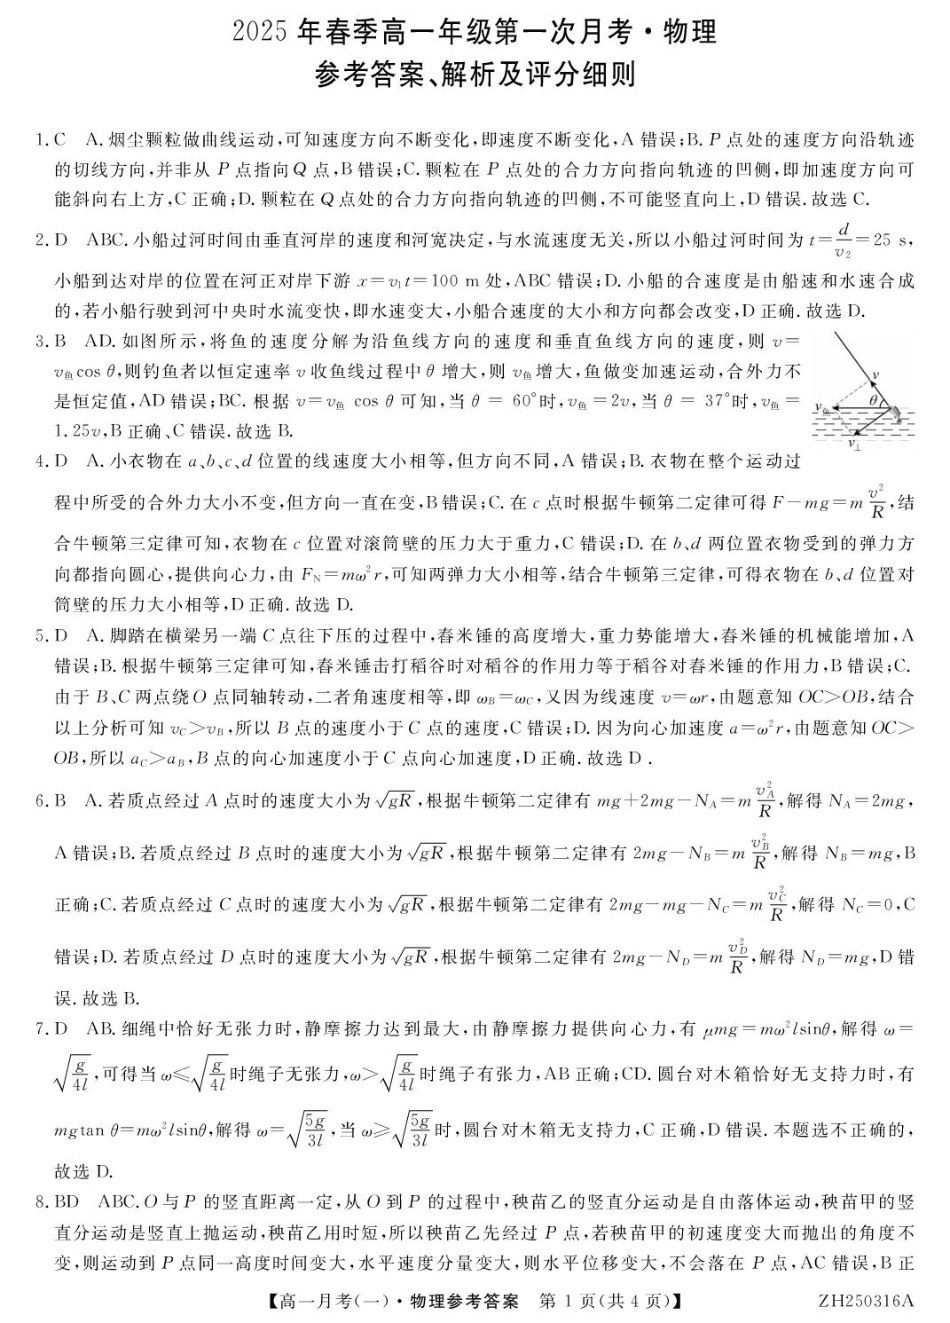 2025 年春季高一年级第一次月考·物理
参考答案、解析及评分细则
1. C　A. 烟尘颗粒做曲线运动,可知速度方向不断变化,即速度不断变化,A 错误;B. P 点处的速度方向沿轨迹
的切线方向,并非从 P 点指向Q 点,B 错误;C. 颗粒在 P 点处的合力方向指向轨迹的凹侧,即加速度方向可
能斜向右上方,C 正确;D. 颗粒在 Q 点处的合力方向指向轨迹的凹侧,不可能竖直向上,D 错误. 故选 C.
2. D　ABC. 小船过河时间由垂直河岸的速度和河宽决定,与水流速度无关,所以小船过河时间为 t=d/v₂=25 s,
小船到达对岸的位置在河正对岸下游 x=v₁t=100 m 处,ABC 错误;D. 小船的合速度是由船速和水速合成
的,若小船行驶到河中央时水流变快,即水速变大,小船合速度的大小和方向都会改变,D 正确. 故选 D.
3. B　AD. 如图所示,将鱼的速度分解为沿鱼线方向的速度和垂直鱼线方向的速度,则 v=
v鱼cos θ,则钓鱼者以恒定速率 v 收鱼线过程中 θ 增大,则 v鱼增大,鱼做变加速运动,合外力不
是恒定值,AD 错误;BC. 根据 v=v鱼 cos θ 可知,当 θ = 60°时,v鱼=2v,当 θ = 37°时,v鱼=
1.25v,B 正确、C 错误. 故选 B.
v
v鱼
θ
v⊥
4. D　A. 小衣物在 a、b、c、d 位置的线速度大小相等,但方向不同,A 错误;B. 衣物在整个运动过
程中所受的合外力大小不变,但方向一直在变,B 错误;C. 在 c 点时根据牛顿第二定律可得 F-mg=m v²/R,结
合牛顿第三定律可知,衣物在 c 位置对滚筒壁的压力大于重力,C 错误;D. 在 b、d 两位置衣物受到的弹力方
向都指向圆心,提供向心力,由 F_N=mω²r,可知两弹力大小相等,结合牛顿第三定律,可得衣物在 b、d 位置对
筒壁的压力大小相等,D 正确. 故选 D.
5. D　A. 脚踏在横梁另一端 C 点往下压的过程中,舂米锤的高度增大,重力势能增大,舂米锤的机械能增加,A
错误;B. 根据牛顿第三定律可知,舂米锤击打稻谷时对稻谷的作用力等于稻谷对舂米锤的作用力,B 错误;C.
由于 B、C 两点绕 O 点同轴转动,二者角速度相等,即 ω_B=ω_C,又因为线速度 v=ωr,由题意知 OC>OB,结合
以上分析可知 v_C>v_B,所以 B 点的速度小于 C 点的速度,C 错误;D. 因为向心加速度 a=ω²r,由题意知 OC>
OB,所以 a_C>a_B,B 点的向心加速度小于 C 点向心加速度,D 正确. 故选 D .
6. B　A. 若质点经过 A 点时的速度大小为 √gR,根据牛顿第二定律有 mg+2mg-N_A=m v_A²/R,解得 N_A=2mg,
A 错误;B. 若质点经过 B 点时的速度大小为 √gR,根据牛顿第二定律有 2mg-N_B=m v_B²/R,解得 N_B=mg,B
正确;C. 若质点经过 C 点时的速度大小为 √gR,根据牛顿第二定律有 2mg-mg-N_C=m v_C²/R,解得 N_C=0,C
错误;D. 若质点经过 D 点时的速度大小为 √gR,根据牛顿第二定律有 2mg-N_D=m v_D²/R,解得 N_D=mg,D 错
误. 故选 B.
7. D　AB. 细绳中恰好无张力时,静摩擦力达到最大,由静摩擦力提供向心力,有 μmg=mω²lsinθ,解得 ω=
√(g/4l),可得当 ω≤√(g/4l)时绳子无张力,ω>√(g/4l)时绳子有张力,AB 正确;CD. 圆台对木箱恰好无支持力时,有
mgtan θ=mω²lsinθ,解得 ω=√(5g/3l),当 ω≥√(5g/3l)时,圆台对木箱无支持力,C 正确,D 错误. 本题选不正确的,
故选 D.
8. BD　ABC. O 与 P 的竖直距离一定,从 O 到 P 的过程中,秧苗乙的竖直分运动是自由落体运动,秧苗甲的竖
直分运动是竖直上抛运动,秧苗乙用时短,所以秧苗乙先经过 P 点,若秧苗甲的初速度变大而抛出的角度不
变,则运动到 P 点同一高度时间变大,水平速度分量变大,则水平位移变大,不会落在 P 点,AC 错误,B 正
【高一月考(一)·物理参考答案　第 1 页(共 4 页)】　ZH250316A